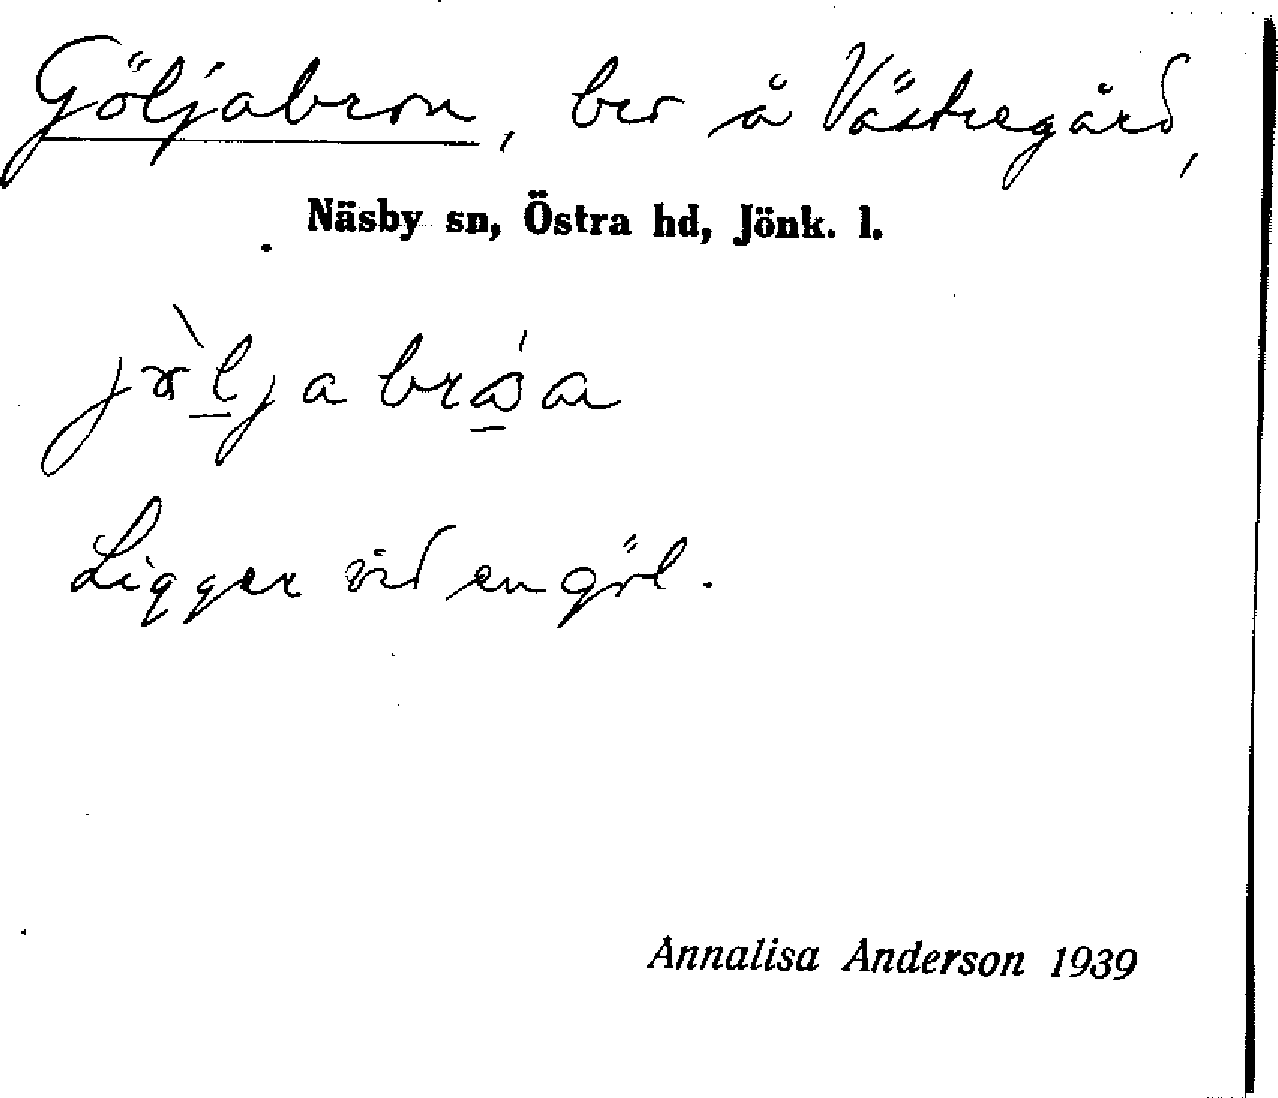 Göljabron, bro å Västregård,
Näsby sn, Östra hd, Jönk. l.
Ligger vid en göl.
Annalisa Anderson 1939